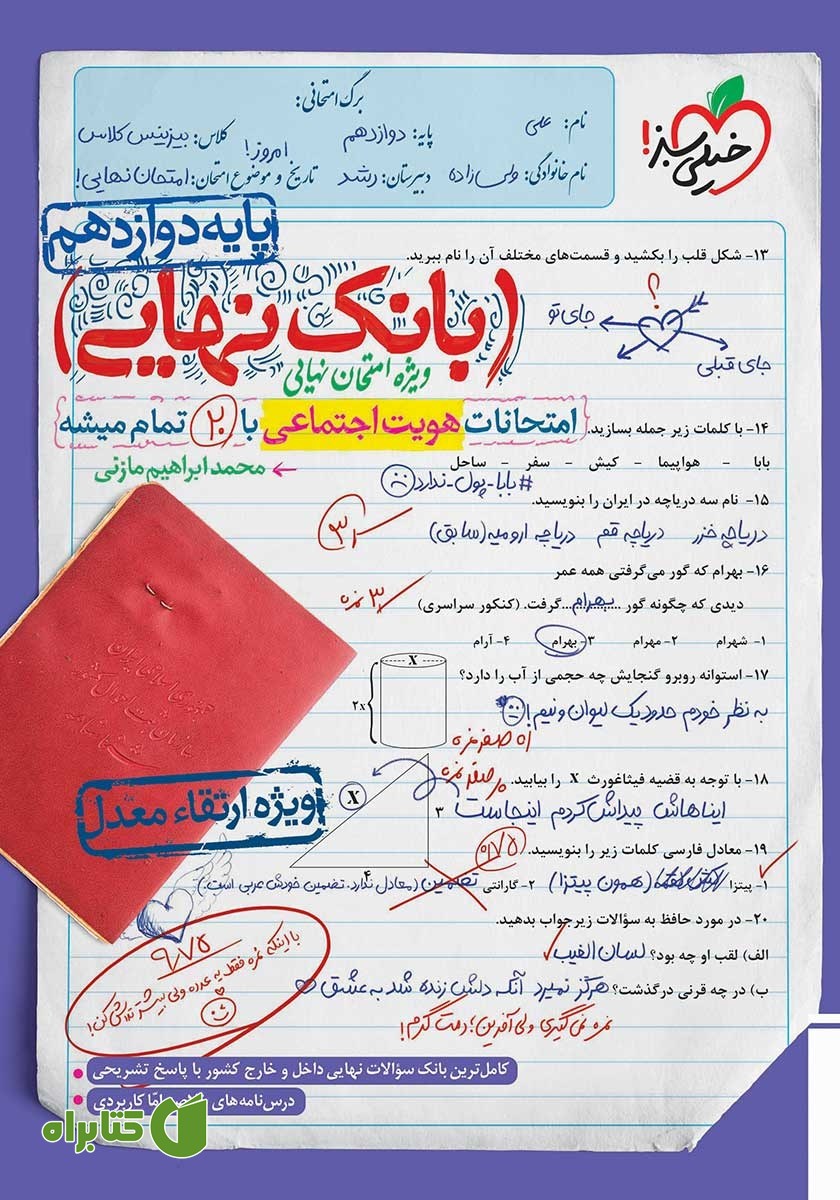 خیلی سبز!
برگ امتحانی:
نام: علی
پایه: دوازدهم
کلاس: بیزینس کلاس
امروز!
نام خانوادگی: ولی زاده
دبیرستان: رشد
تاریخ و موضوع امتحان: امتحان نهایی!
پایه دوازدهم
۱۳- شکل قلب را بکشید و قسمت‌های مختلف آن را نام ببرید.
؟
جای تو
جای قبلی
(بانک نهایی)
ویژه امتحان نهایی
{امتحانات هویت اجتماعی با ۲۰ تمام میشه}
محمد ابراهیم مازنی
۱۴- با کلمات زیر جمله بسازید.
بابا - هواپیما - کیش - سفر - ساحل
#بابا_پول_ندارد
۱۵- نام سه دریاچه در ایران را بنویسید.
دریاچه خزر دریاچه قم دریاچه ارومیه (سابق)
۱۶- بهرام که گور می‌گرفتی همه عمر
دیدی که چگونه گور ...بهرام... گرفت. (کنکور سراسری)
۳ نمره
۱- شهرام ۲- مهرام ۳- بهرام ۴- آرام
۱۷- استوانه روبرو گنجایش چه حجمی از آب را دارد؟
X
۲x
به نظر خودم حدود یک لیوان و نیم!
اه صفر نمره
۱۸- با توجه به قضیه فیثاغورث X را بیابید.
صفر نمره
ایناهاش پیداش کردم اینجاست
X
۳
۴
ویژه ارتقاء معدل
۱۹- معادل فارسی کلمات زیر را بنویسید.
۰/۷۵
۱- پیتزا (همون پیتزا) ۲- گارانتی تضمین (معادل ندارد. تضمین خودش عربی است.)
۲۰- در مورد حافظ به سؤالات زیر جواب بدهید.
الف) لقب او چه بود؟ لسان الغیب
ب) در چه قرنی درگذشت؟ هرگز نمیرد آنکه دلش زنده شد به عشق
نمره نمی‌گیری ولی آفرین! دمت گرم!
۹/۷۵
با اینکه نمره فقط یه عدده ولی بیشتر تلاش کن!
کامل‌ترین بانک سؤالات نهایی داخل و خارج کشور با پاسخ تشریحی
درس‌نامه‌های امّا کاربردی
کتابراه